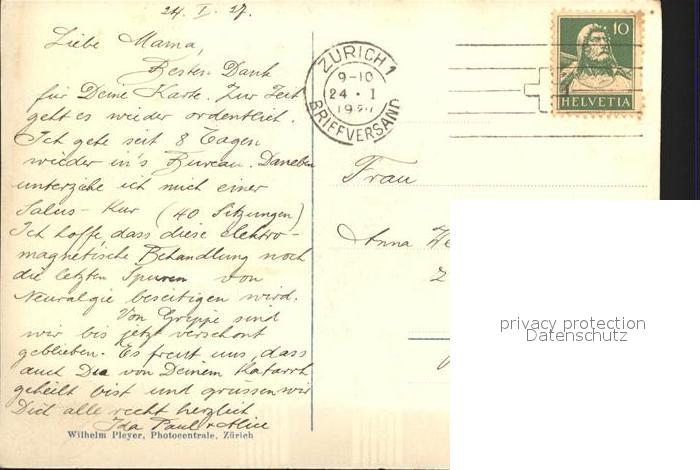 24. I. 27.
Liebe Mama,
Besten Dank
für Deine Karte. Zur Zeit
geht es wieder ordentlich.
Ich gehe seit 8 Tagen
wieder in's Bureau. Daneben
unterziehe ich mich einer
Salus-Kur (40 Sitzungen)
Ich hoffe dass diese elektro-
magnetische Behandlung noch
die letzten Spuren von
Neuralgie beseitigen wird.
Von Grippe sind
wir bis jetzt verschont
geblieben. Es freut uns, dass
auch Du von Deinem Katarrh
geheilt bist und grüssen wir
Dich alle recht herzlich
Ida Paul + Alice
Wilhelm Pleyer, Photocentrale, Zürich
ZÜRICH 1
9-10
24 · I
BRIEFVERSAND
10
HELVETIA
Frau
Anna
privacy protection
Datenschutz